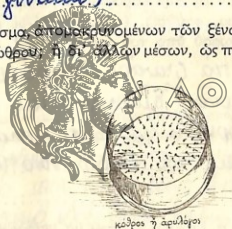 σμα, ἀπομακρυνομένων τῶν ξένω
όθρου, ἢ δι' ἄλλων μέσων, ὡς π
Β
ΑΘ
κόθρος ἢ ἀρυλόγος